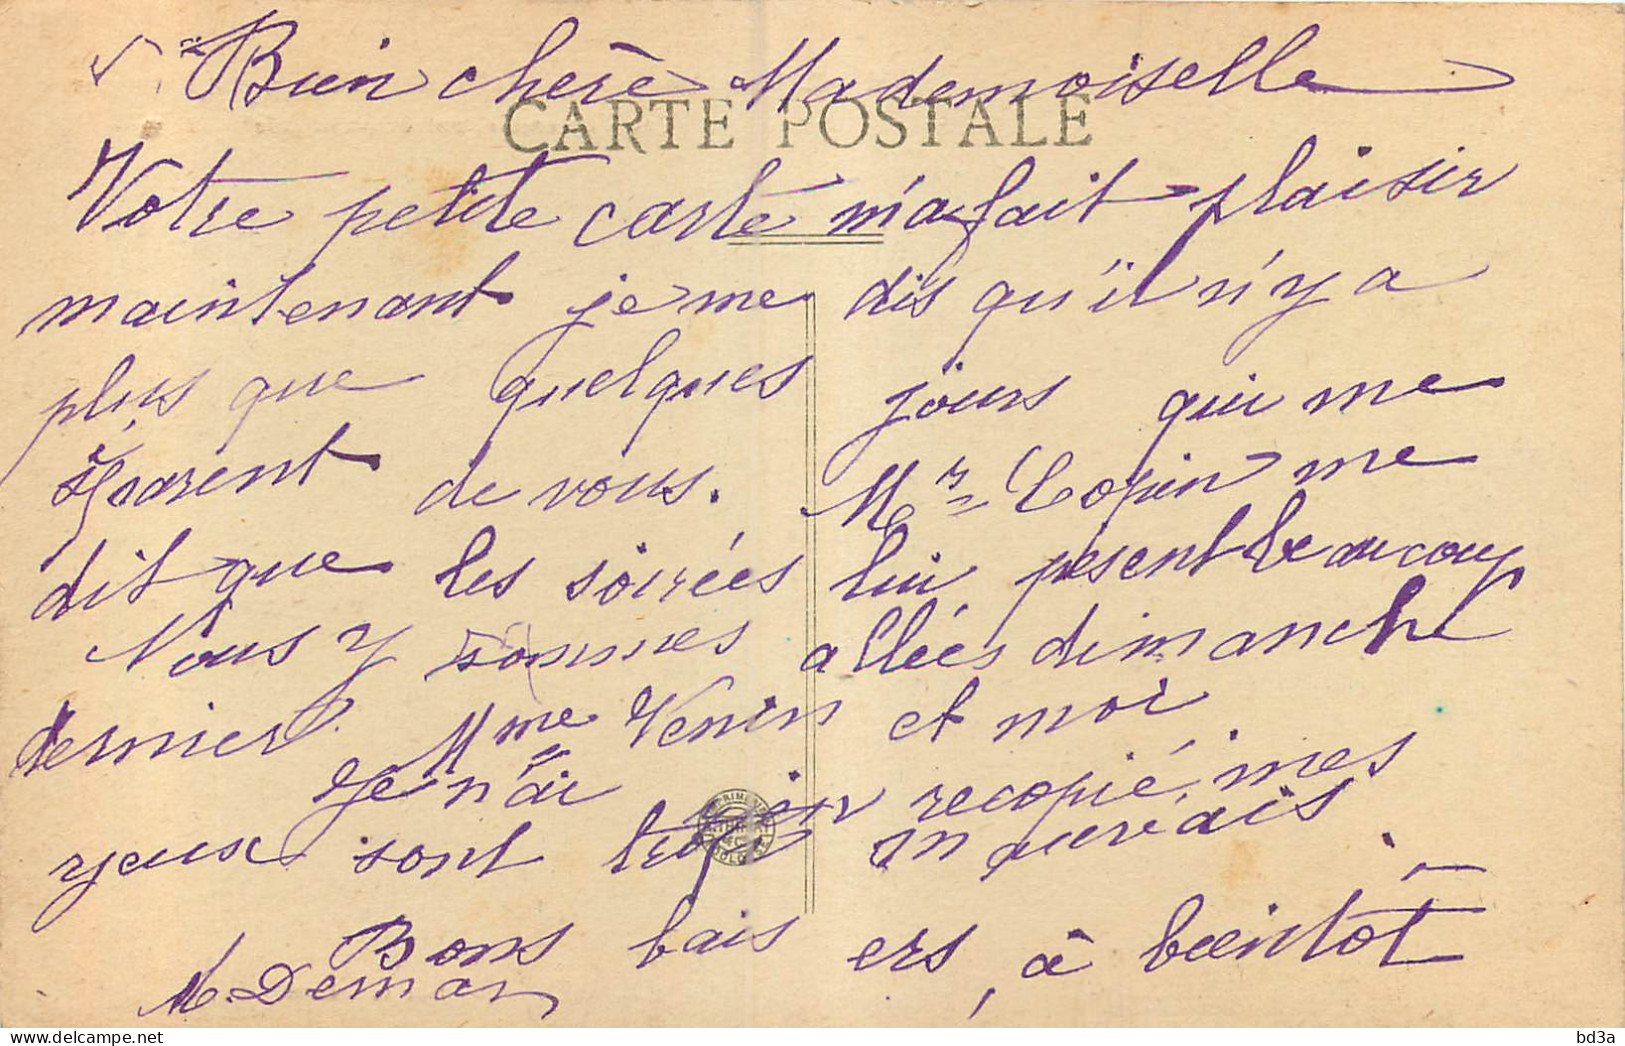 Bien chère Mademoiselle
CARTE POSTALE
Votre petite carte m'a fait plaisir
maintenant je me dis qu'il n'y a
plus que quelques jours qui me
séparent de vous. Mr Copin me
dit que les soirées lui pesent beaucoup
Nous y sommes allées dimanche
dernier. Mme Venin et moi
Je n'ai rien recopié, mes
yeux sont trop mauvais.
Bons baisers, à bientôt
M. Demar
delcampe.net
bd3a